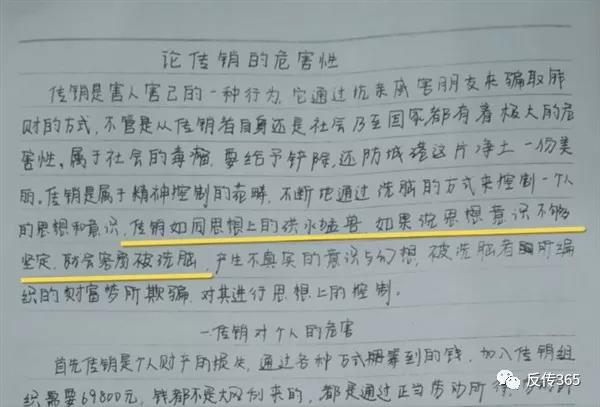 论传销的危害性
传销是害人害己的一种行为,它通过坑亲属害朋友来骗取钱
财的方式,不管是从传销者自身还是社会乃至国家都有着极大的危
害性。属于社会的毒瘤,要给予铲除,还防城港这片净土一份美
丽。传销是属于精神控制的范畴,不断地通过洗脑的方式来控制一个人
的思想和意识,传销如同思想上的洪水猛兽,如果说思想意识不够
坚定,就会容易被洗脑,产生不真实的意识与幻想,被洗脑者所编
织的财富梦所欺骗,对其进行思想上的控制。
一传销对个人的危害
首先传销是个人财产的损失,通过各种方式筹到的钱,加入传销组
织需要69800元,钱都不是大风刮来的,都是通过正当劳动所得
反传365